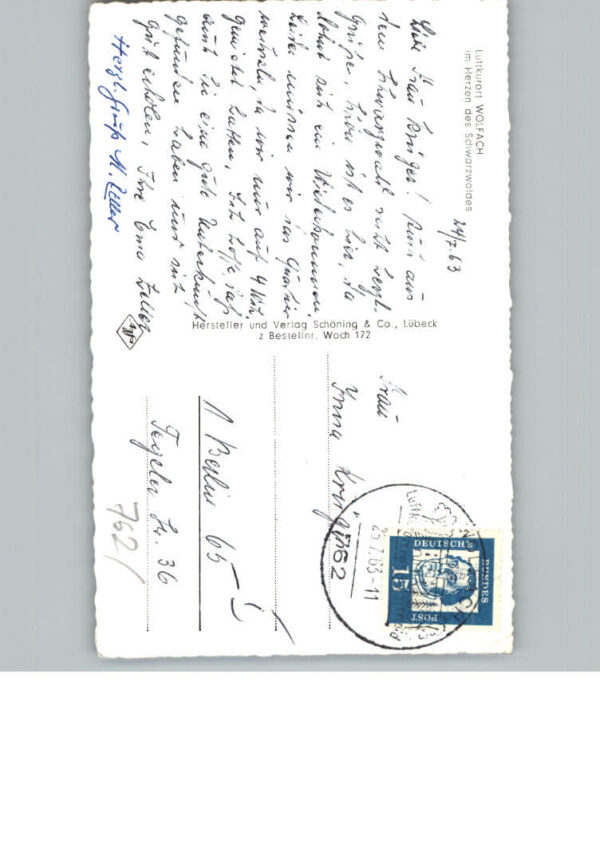 Luftkurort WOLFACH
im Herzen des Schwarzwaldes
24/7.63
Liebe Frau Krüger! Aus
dem Schwarzwald recht herzl.
Grüße, schön ist es hier, da
lohnt sich ein Wiederkommen,
leider müssen wir das Quartier
wechseln, da wir nur auf 4 Woch.
gemietet hatten. Ich hoffe, daß
auch Sie eine gute Unterkunft
gefunden haben und sich
gut erholen, Ihre Erna Zeller
Herzl. Gruß M. Zeller
Hersteller und Verlag Schöning & Co., Lübeck
Bestellnr. Woch 172
Frau
Irma Krüger
1 Berlin 65
Tegeler Str. 36
762
25.7.63-11
7621
DEUTSCHE
BUNDES
POST
15